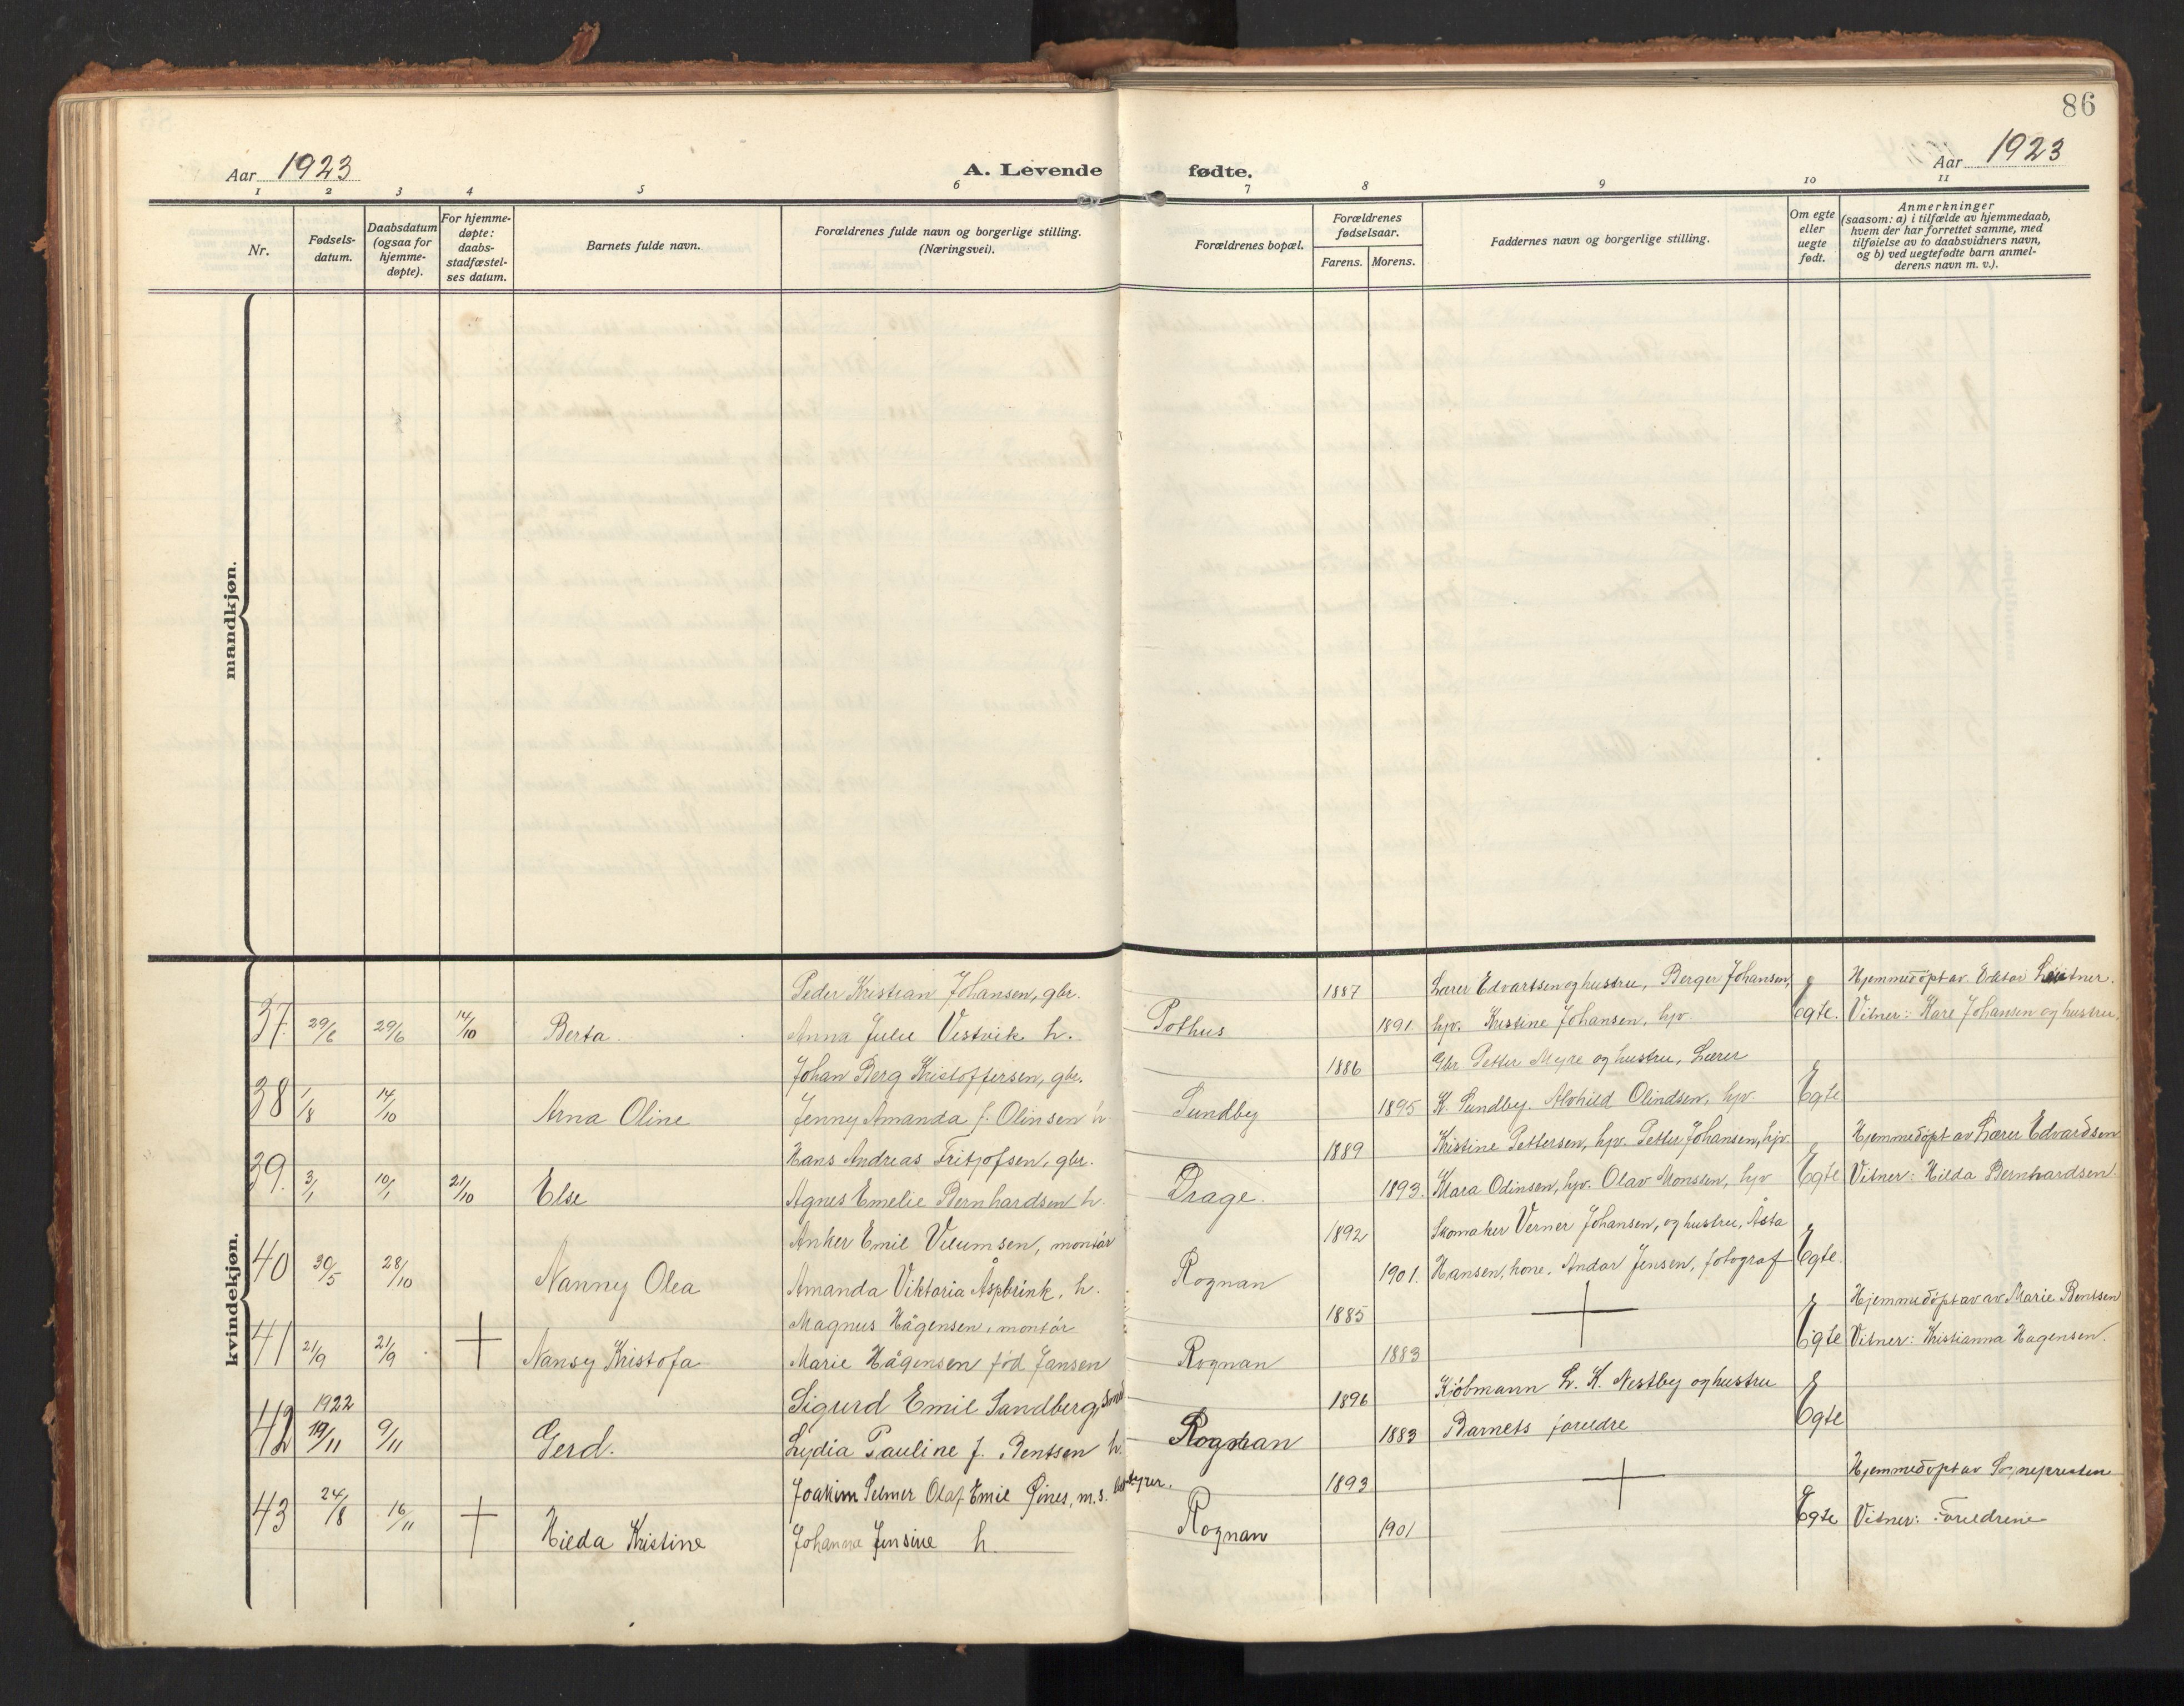 86
Aar 1923
A. Levende fødte.
Aar 1923
1 2 3 4 5 6 7 8 9 10 11
Nr.
Fødsels-
datum.
Daabsdatum
(ogsaa for
hjemme-
døpte).
For hjemme-
døpte:
daabs-
stadfæstel-
ses datum.
Barnets fulde navn.
Forældrenes fulde navn og borgerlige stilling.
(Næringsvei).
Forældrenes bopæl.
Forældrenes
fødselsaar.
Farens. Morens.
Faddernes navn og borgerlige stilling.
Om egte
eller
uegte
født.
Anmerkninger
(saasom: a) i tilfælde av hjemmedaab,
hvem der har forrettet samme, med
tilføielse av to daabsvidners navn,
og b) ved uegtefødte barn anmel-
derens navn m. v.).
mandkjøn.
kvindekjøn.
Peder Kristian Johansen, gbr. 1887 Lærer Edvartsen og hustru, Berger Johansen, Hjemmedöpt av Doktor Leitner.
37. 29/6 29/6 14/10 Berta Anna Julie Vestvik h. Pothus 1891. hjv. Kristine Johansen, hjv. Egte. Vitner: Kare Johansen og hustru.
Johan Berg Kristoffersen, gbr. 1886 Gbr Petter Myre og hustru, Lærer
38 1/8 14/10 Arna Oline Jenny Amanda f. Olinsen h. Sundby 1895 K. Sundby. Alvhild Olindsen, hjv. Egte
Hans Andreas Fritjofsen, gbr. 1889 Kristine Pettersen, hjv. Petter Johansen, hjv. Hjemmedöpt av Lærer Edvardsen
39. 3/1 10/1 21/10 Else Agnes Emelie Bernhardsen h. Drage. 1893. Mara Odinsen, hjv. Olav Monsen, hjv Egte Vitner: Hilda Bernhardsen
Anker Emil Vilumsen, montör 1892 Skomaker Verner Johansen, og hustru, Åsta
40 30/5 28/10 Nanny Olea Amanda Viktoria Åspbrink, h. Rognan 1901. Hansen, kone. Andor Jensen, fotograf Egte.
Magnus Hågensen, montör 1885 Hjemmedöpt av av Marie Bentsen
41 21/9 21/9 Nansy Kristofa Marie Hågensen född Jansen Rognan 1883 Egte Vitner: Kristianna Hagensen.
1922 Sigurd Emil Sandberg, smed 1896 Kjöbmann L. K. Nestby og hustru
42 19/11 9/11 Gerd. Lydia Pauline f. Bentsen h. Rognan 1883 Barnets foreldre Egte
Joakim Selmer Olaf Emil Gines, m.s. bestyrer. 1893 Hjemmedöpt av Sognepresten
43 24/8 16/11 Hilda Kristine Johanna Jensine h. Rognan 1901 Egte Vitner: Foreldrene